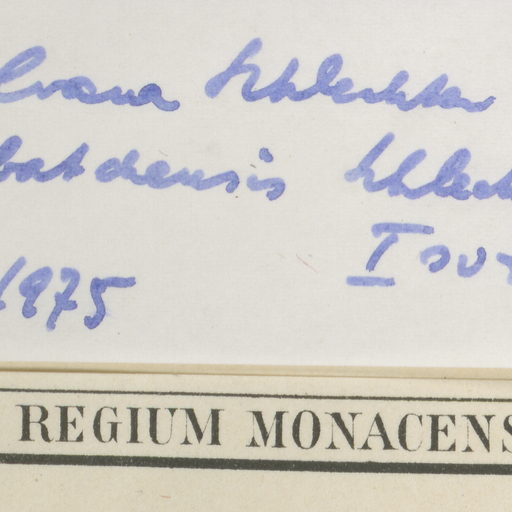 Schlechter
batdensis Schlech
I
1975
REGIUM MONACENS